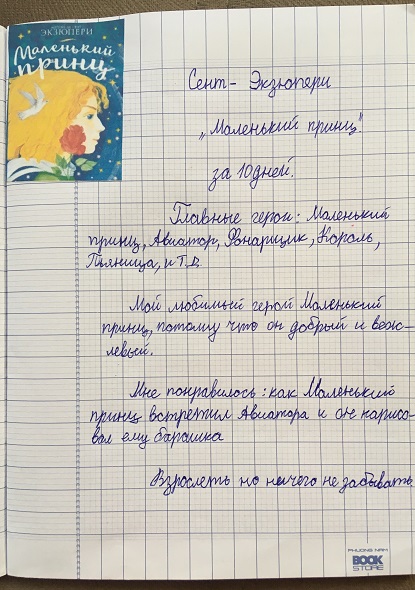 ЭКЗЮПЕРИ
Маленький
принц
Сент- Экзюпери
„Маленький принц"
за 10 дней.
Главные герои: Маленький
принц, Авиатор, Фонарщик, Король,
Пьяница, и Т.Д.
Мой любимый герой Маленький
принц, потому что он добрый и веж-
левый.
Мне понравилось: как Маленький
принц встретил Авиатора и он нарисо-
вал ему барашка
Взрослеть но ничего не забывать.
PHUONG NAM
BOOK
STORE